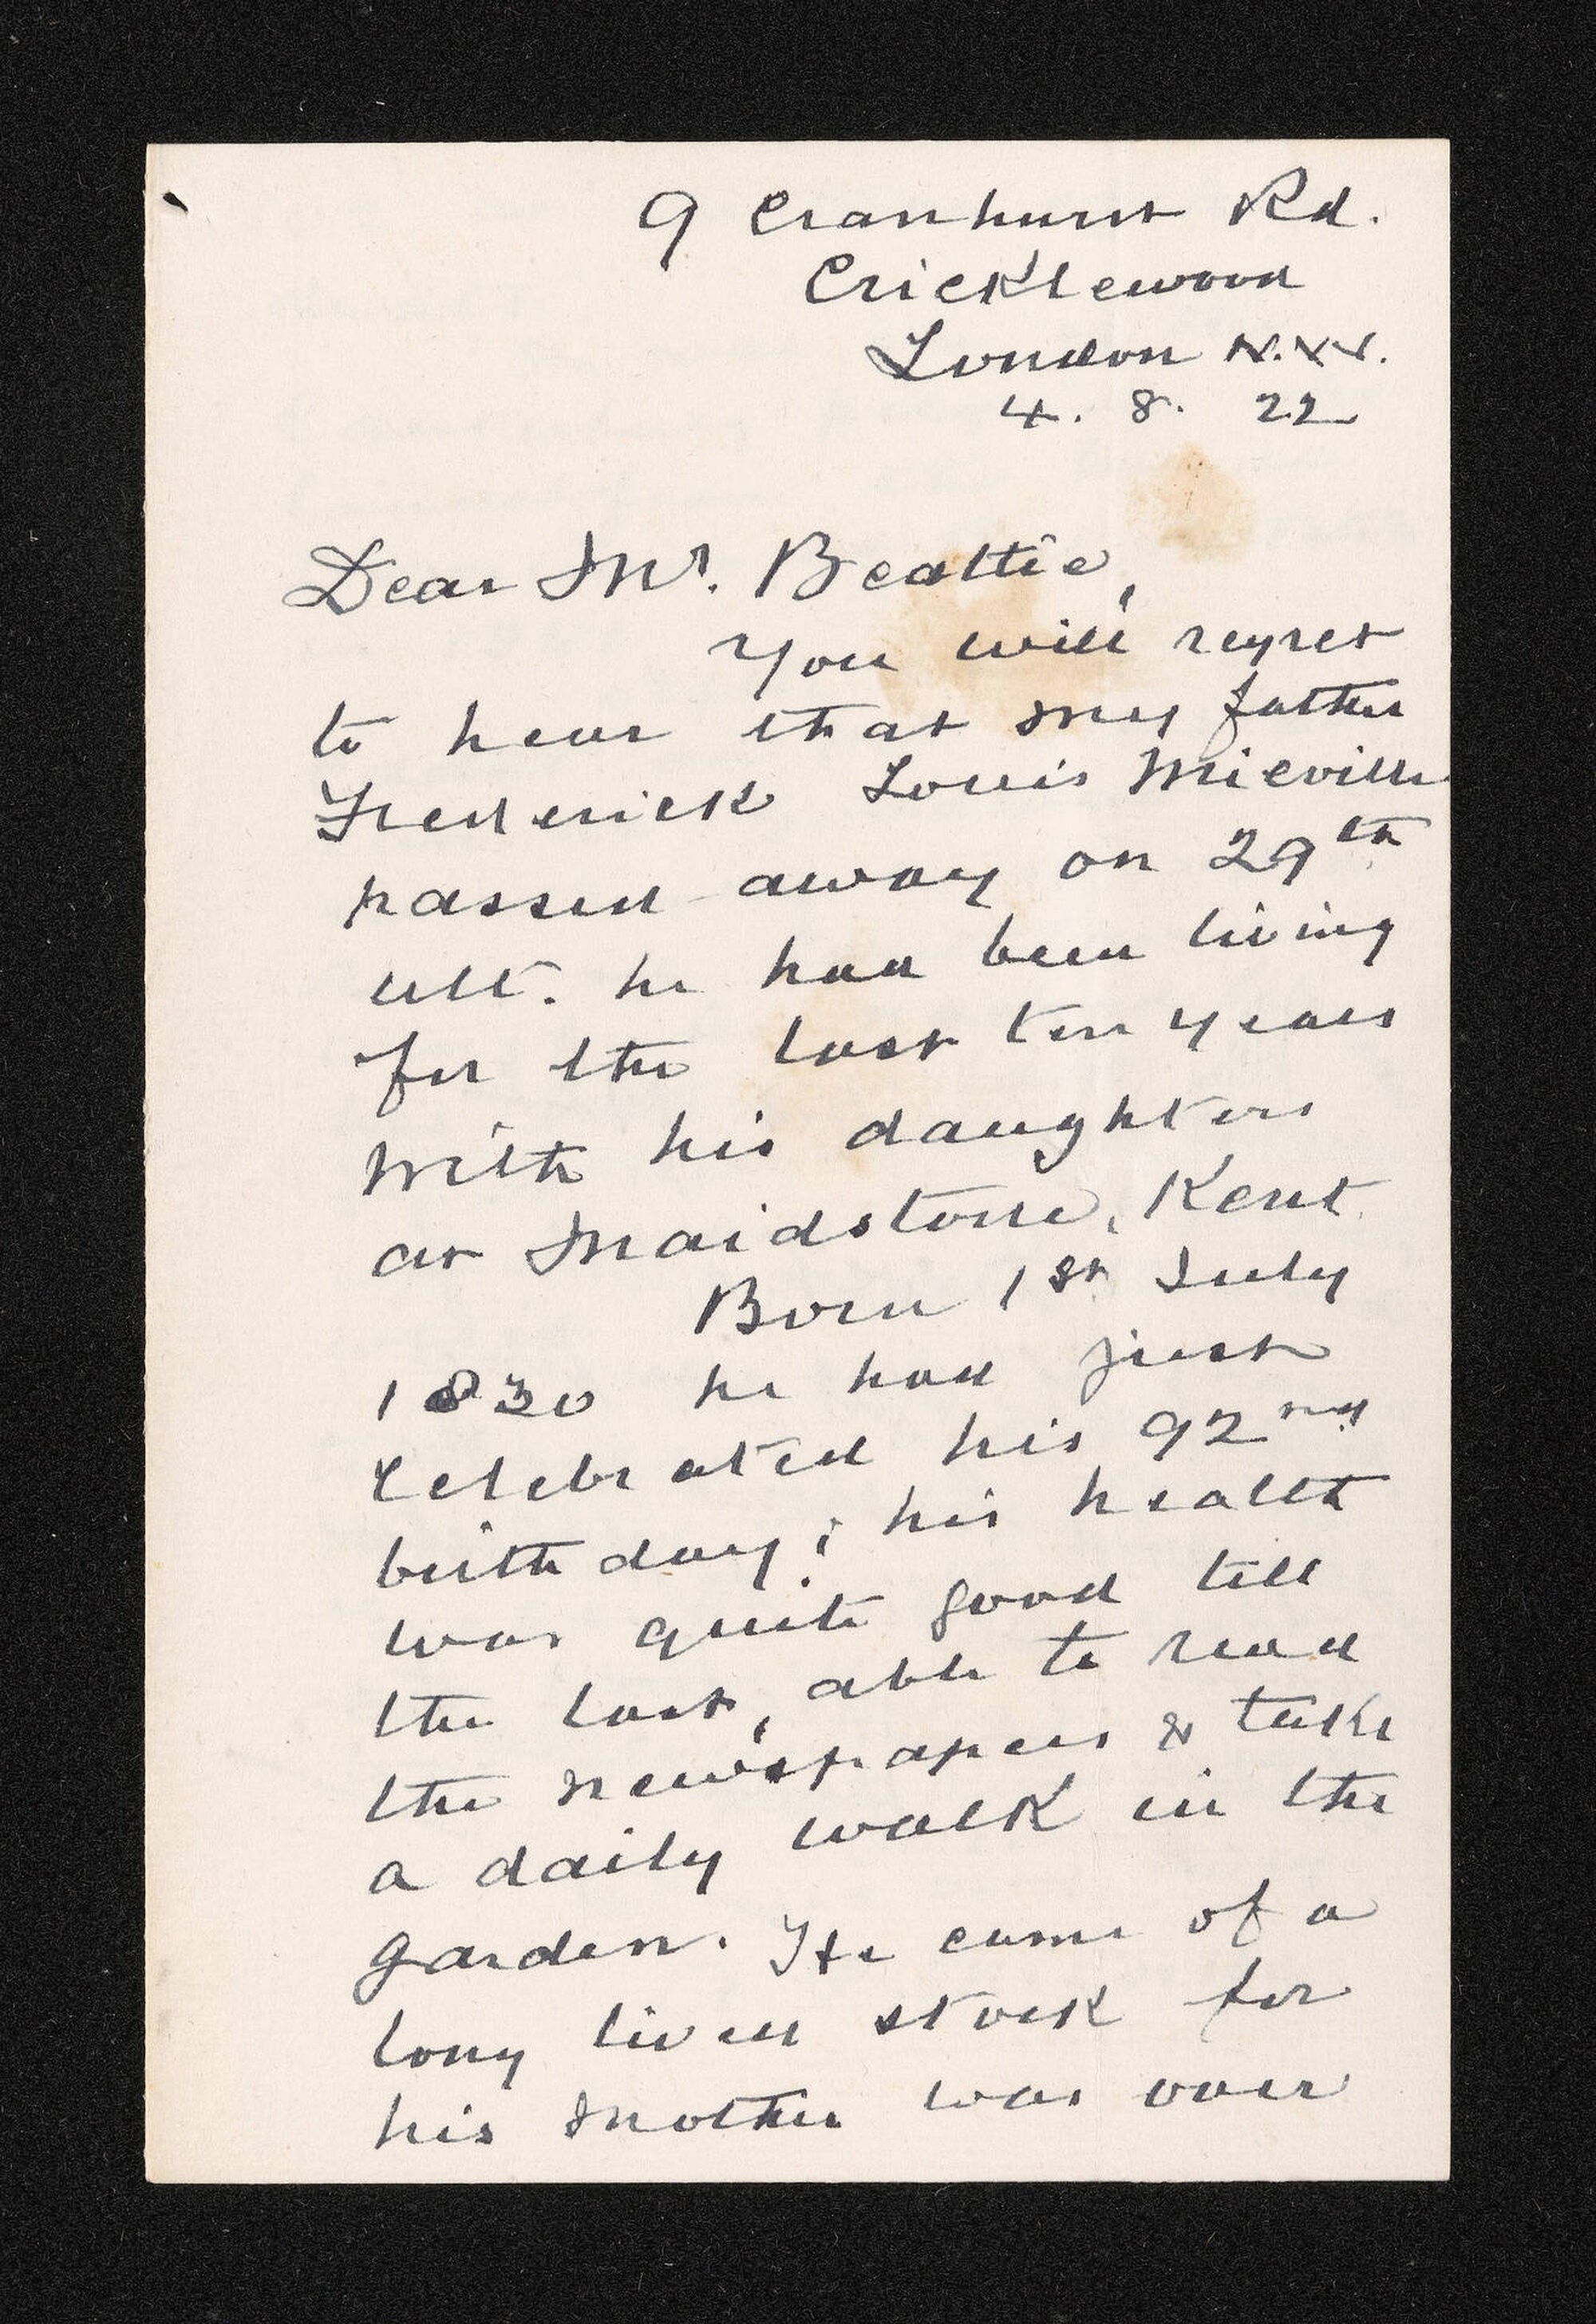 9 Cranhurst Rd.
Cricklewood
London N.W.
4. 8. 22
Dear Mr. Beattie,
You will regret
to hear that my father
Frederick Louis Mieville
passed away on 29th
ult. he had been living
for the last ten years
with his daughters
at Maidstone, Kent
Born 1st July
1830 he had just
celebrated his 92nd
birthday; his health
was quite good till
the last, able to read
the newspapers & take
a daily walk in the
garden. He came of a
long lived stock for
his mother was over